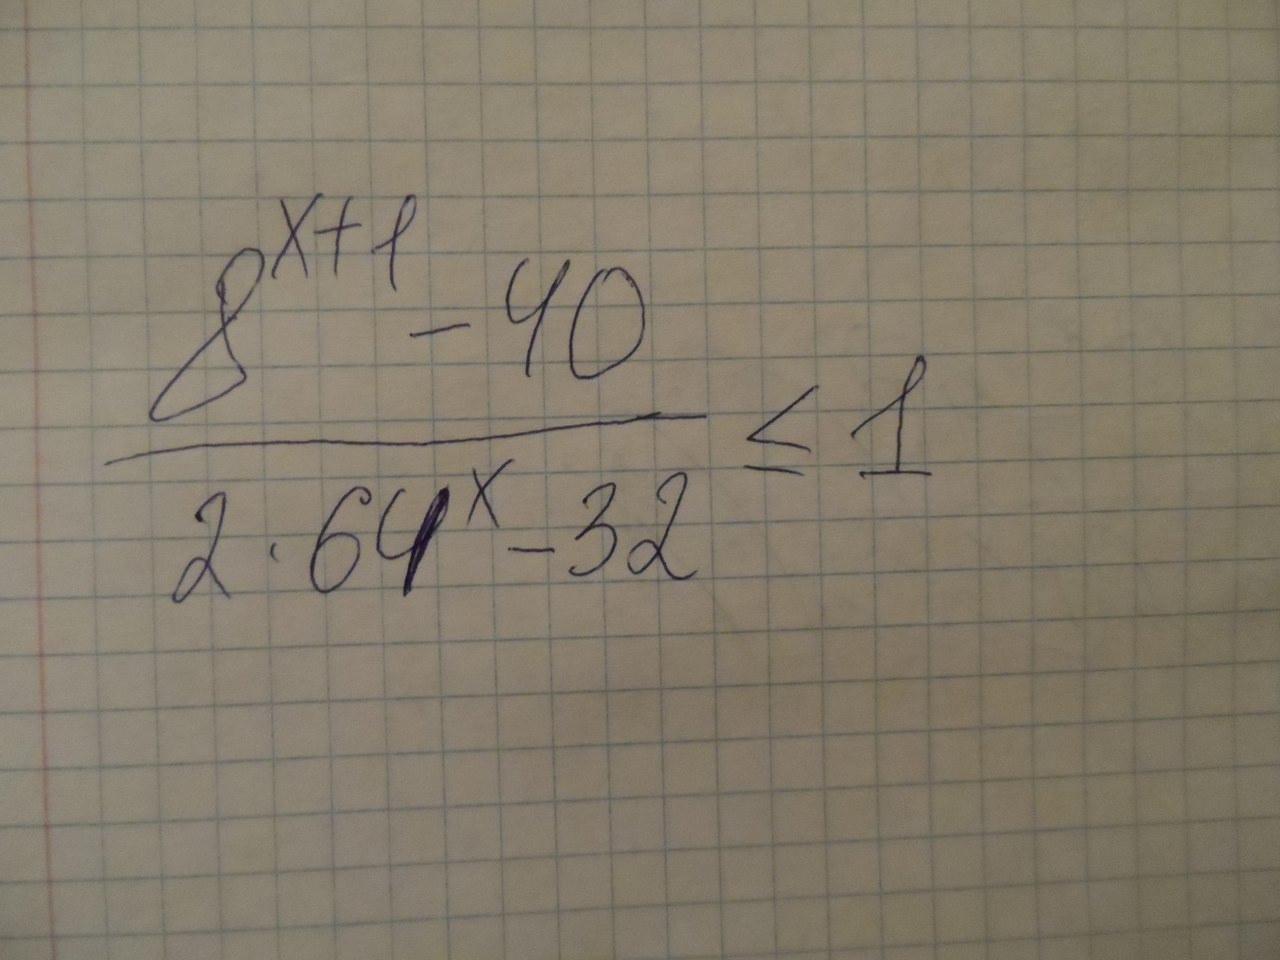 8^{x+1} - 40
2 · 64^x - 32
≤ 1